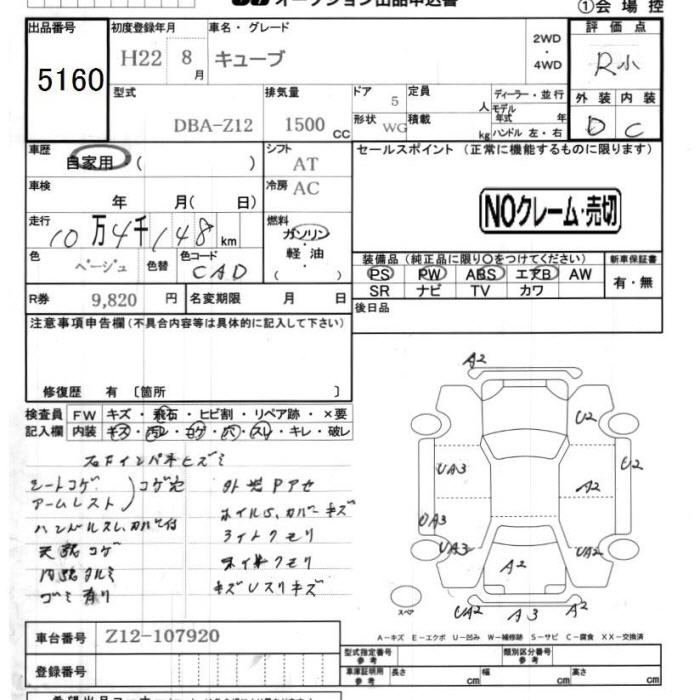 オークション出品申込書
①会場控
出品番号
5160
初度登録年月
H22 8月
車名・グレード
キューブ
2WD
・
4WD
評価点
R小
型式
DBA-Z12
排気量
1500 CC
ドア
5
形状
WG
定員
人
積載
kg
ディーラー・並行
モデル
年式 年
ハンドル 左・右
外装 内装
D C
車歴
自家用 ( )
シフト
AT
セールスポイント (正常に機能するものに限ります)
NOクレーム・売切
車検
年 月( 日)
冷房
AC
走行
10万4千148km
燃料
ガソリン
・
軽油
( )
色
ベージュ
色替
色コード
CAD
装備品 (純正品に限り○をつけてください)
新車保証書
PS PW ABS エアB AW
SR ナビ TV カワ
有・無
R券 9,820 円
名変期限 月 日
後日品
注意事項申告欄(不具合内容等は具体的に記入して下さい)
修復歴 有 〔箇所 〕
検査員 FW キズ・飛石・ヒビ割・リペア跡・×要
記入欄 内装 キズ・汚レ・コゲ・穴・スレ・キレ・破レ
右Fインパネヒズミ
シートコゲ
アームレスト
コゲ穴
外装Pアセ
ハンドルスレ、カバー付
ホイルS、カバーキズ
天張コゲ
ライトクモリ
内張タルミ
ゴミ有り
キズUスリキズ
A2
U2
UA3
A2
U2
UA3
UA3
UA2
A2
UA2
A3
A2
スペア
A-キズ E-エクボ U-凹み W-補修跡 S-サビ C-腐食 XX-交換済
車台番号 Z12-107920
登録番号
型式指定番号
参考
類別区分番号
参考
車庫証明用
参考
長さ cm
幅 cm
高さ cm